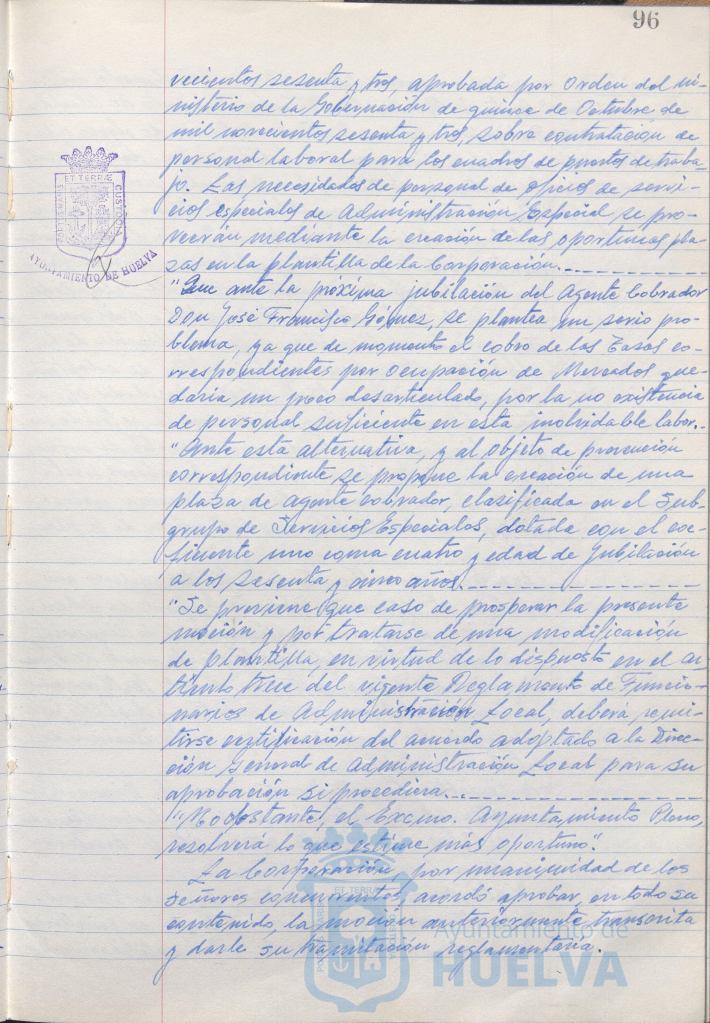 96
vecientos sesenta y tres, aprobada por Orden del Mi-
nisterio de la Gobernación de quince de Octubre de
mil novecientos sesenta y tres, sobre contratación de
personal laboral para los cuadros de puestos de traba-
jo. Las necesidades de personal de oficios de servi-
cios especiales de Administración Especial se pro-
veerán mediante la creación de las oportunas pla-
zas en la plantilla de la Corporación.
"Que ante la próxima jubilación del Agente Cobrador
Don José Francisco Gómez, se plantea un serio pro-
blema, ya que de momento el cobro de las Tasas co-
rrespondientes por ocupación de Mercados que-
daría un poco desarticulado, por la no existencia
de personal suficiente en esta inolvidable labor.
"Ante esta alternativa, y al objeto de prevención
correspondiente se propone la creación de una
plaza de agente cobrador, clasificada en el Sub-
grupo de Servicios Especiales, dotada con el coe-
ficiente uno coma cuatro y edad de Jubilación
a los sesenta y cinco años.
"Se previene que caso de prosperar la presente
moción y por tratarse de una modificación
de plantilla, en virtud de lo dispuesto en el ar-
tículo trece del vigente Reglamento de Funcio-
narios de Administración Local, deberá remi-
tirse certificación del acuerdo adoptado a la Direc-
ción General de Administración Local para su
aprobación si procediera.
"No obstante, el Excmo. Ayuntamiento Pleno,
resolverá lo que estime más oportuno".
La Corporación, por unanimidad de los
Señores concurrentes, acordó aprobar, en todo su
contenido, la moción anteriormente transcrita
y darle su tramitación reglamentaria.
ET TERRÆ
CUSTODIA
AYUNTAMIENTO DE HUELVA
ET TERRA
Ayuntamiento de
HUELVA